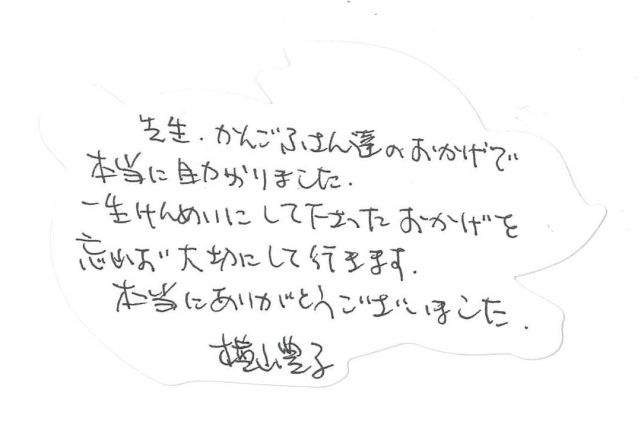 先生．かんごふさん達のおかげで
本当に助かりました．
一生けんめいにして下さったおかげを
忘れず大切にして行きます．
本当にありがとうございました．
横山豊子